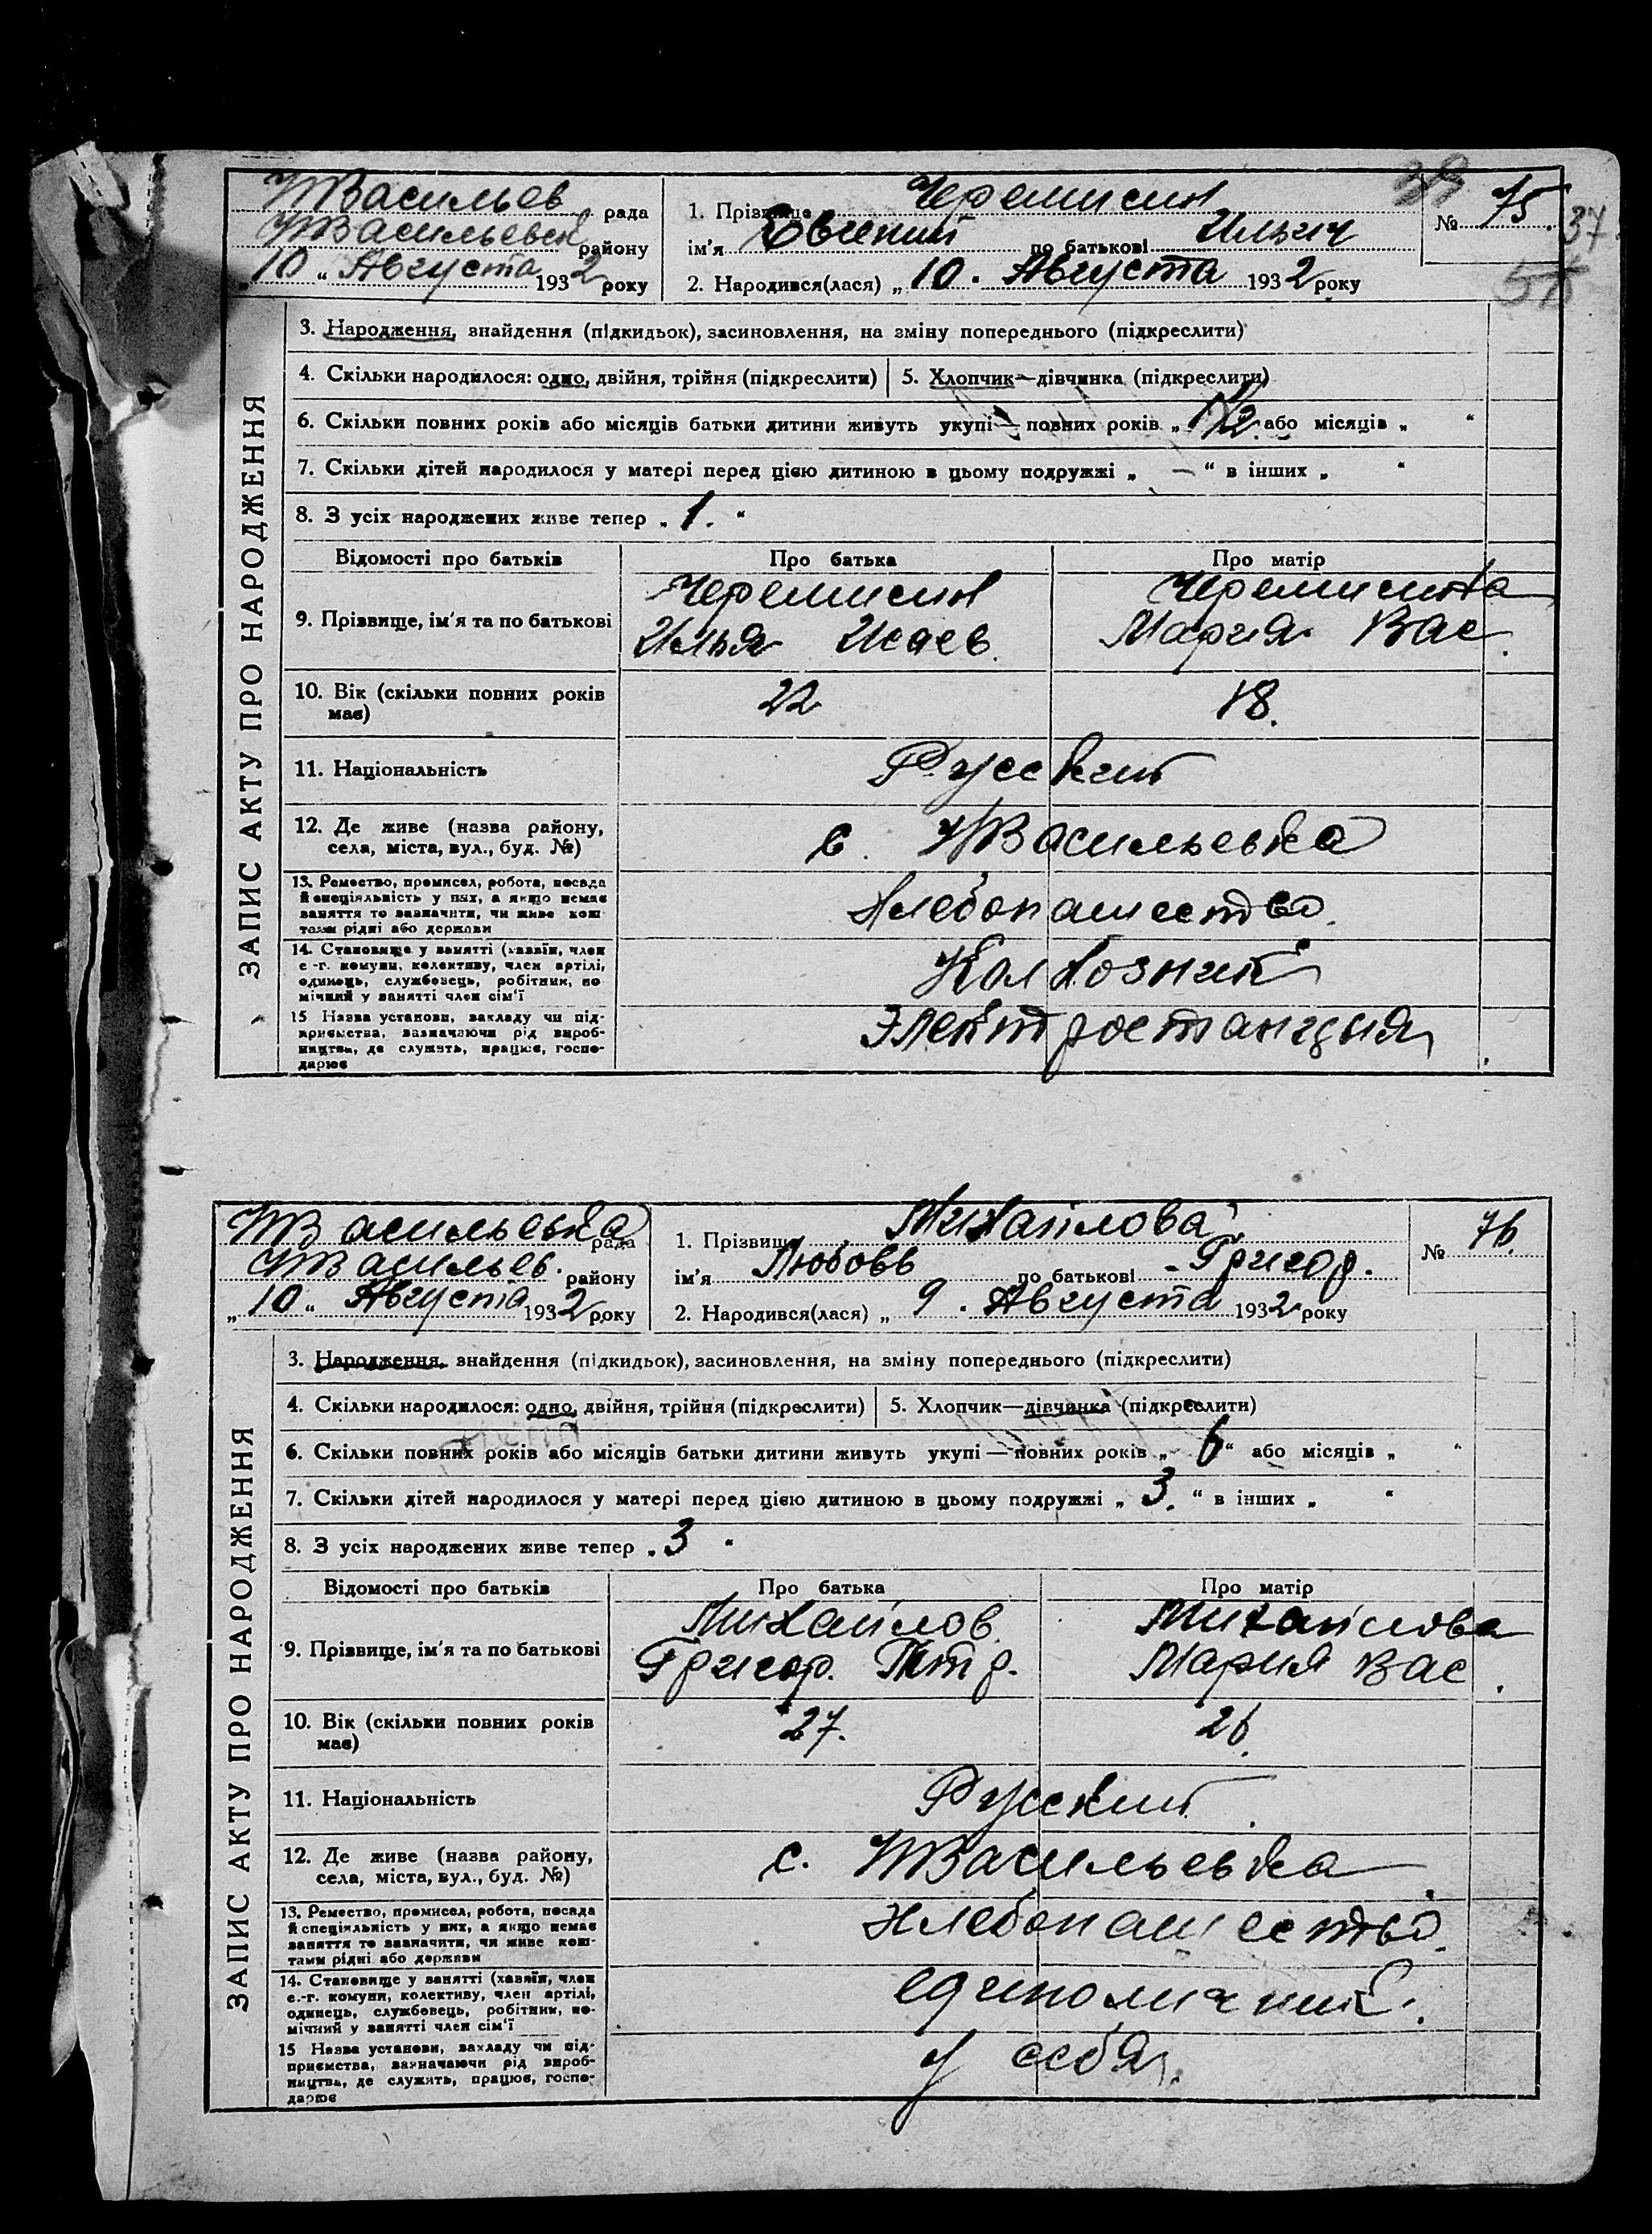 39
37
57
УВасильев рада
УВасильевск району
„10“ Августа 1932 року
1. Прізвище Черемисин
ім'я Евгений по батькові Ильич
2. Народився(лася) „10. Августа 1932 року
№ 75.
ЗАПИС АКТУ ПРО НАРОДЖЕННЯ
3. Народження, знайдення (підкидьок), засиновлення, на зміну попереднього (підкреслити)
4. Скільки народилося: одно, двійня, трійня (підкреслити)
5. Хлопчик—дівчинка (підкреслити)
6. Скільки повних років або місяців батьки дитини живуть укупі — повних років „ 1 1/2 або місяців „ “
7. Скільки дітей народилося у матері перед цією дитиною в цьому подружжі „ — “ в інших „ “
8. З усіх народжених живе тепер „ 1. “
Відомості про батьків Про батька Про матір
9. Прізвище, ім'я та по батькові
Черемисин
Илья Исаев.
Черемисина
Мария Вас.
10. Вік (скільки повних років
має)
22
18.
11. Національність Русский
12. Де живе (назва району,
села, міста, вул., буд. №)
с. УВасильевка
13. Ремество, промисел, робота, посада
й спеціяльність у них, а якщо немає
заняття то зазначити, чи живе кош-
тами рідні або держави
Хлебопашество.
14. Становище у занятті (хазяїн, член
с.-г. комуни, колективу, член артілі,
одинець, службовець, робітник, по
мічний у занятті член сім'ї
Колхозник
15 Назва установи, закладу чи під-
приємства, зазначаючи рід вироб-
ництва, де служить, працює, госпо-
дарює
Электростанция
УВасильевка рада
УВасильев. району
„10“ Августа 1932 року
1. Прізвище Михайлова
ім'я Любовь по батькові Григор.
2. Народився(лася) „ 9. Августа 1932 року
№ 76.
ЗАПИС АКТУ ПРО НАРОДЖЕННЯ
3. Народження, знайдення (підкидьок), засиновлення, на зміну попереднього (підкреслити)
4. Скільки народилося: одно, двійня, трійня (підкреслити)
5. Хлопчик—дівчинка (підкреслити)
6. Скільки повних років або місяців батьки дитини живуть укупі — повних років „ 6 “ або місяців „ “
7. Скільки дітей народилося у матері перед цією дитиною в цьому подружжі „ 3. “ в інших „ “
8. З усіх народжених живе тепер „ 3 “
Відомості про батьків Про батька Про матір
9. Прізвище, ім'я та по батькові
Михайлов
Григор. Петр.
Михайлова
Мария Вас.
10. Вік (скільки повних років
має)
27.
26.
11. Національність Русский
12. Де живе (назва району,
села, міста, вул., буд. №)
с. УВасильевка
13. Ремество, промисел, робота, посада
й спеціяльність у них, а якщо немає
заняття то зазначити, чи живе кош-
тами рідні або держави
Хлебопашество.
14. Становище у занятті (хазяїн, член
с.-г. комуни, колективу, член артілі,
одинець, службовець, робітник, по-
мічний у занятті член сім'ї
единоличник.
15 Назва установи, закладу чи під-
приємства, зазначаючи рід вироб-
ництва, де служить, працює, госпо-
дарює
у себя.